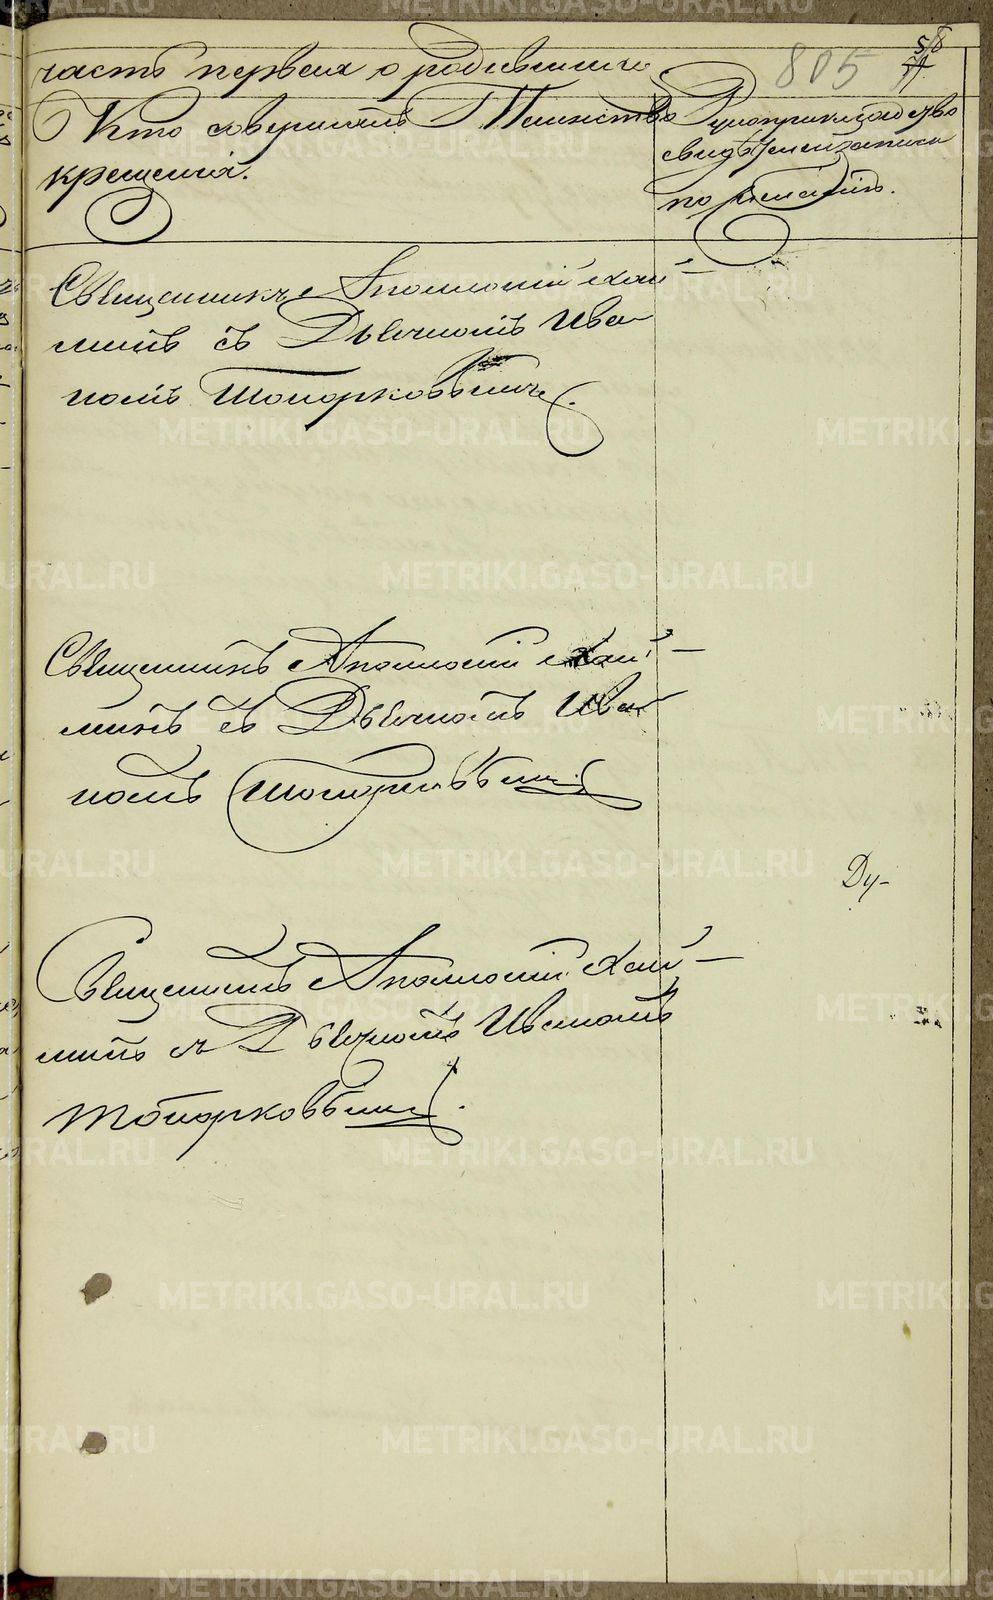 часть первая о родившихся
805
58
Кто совершалъ Таинство
крещенія.
Рукоприкладство
свидѣтелей записи
по желанію.
Священникъ Аполлоній Хай-
минъ съ Дьячкомъ Ива
номъ Топорковымъ.
Священникъ Аполлоній Хай-
минъ съ Дьячкомъ Ива
номъ Топорковымъ
Ду-
Священникъ Аполлоній Хай-
минъ съ Дьячкомъ Иваномъ
Топорковымъ.
METRIKI.GASO-URAL.RU